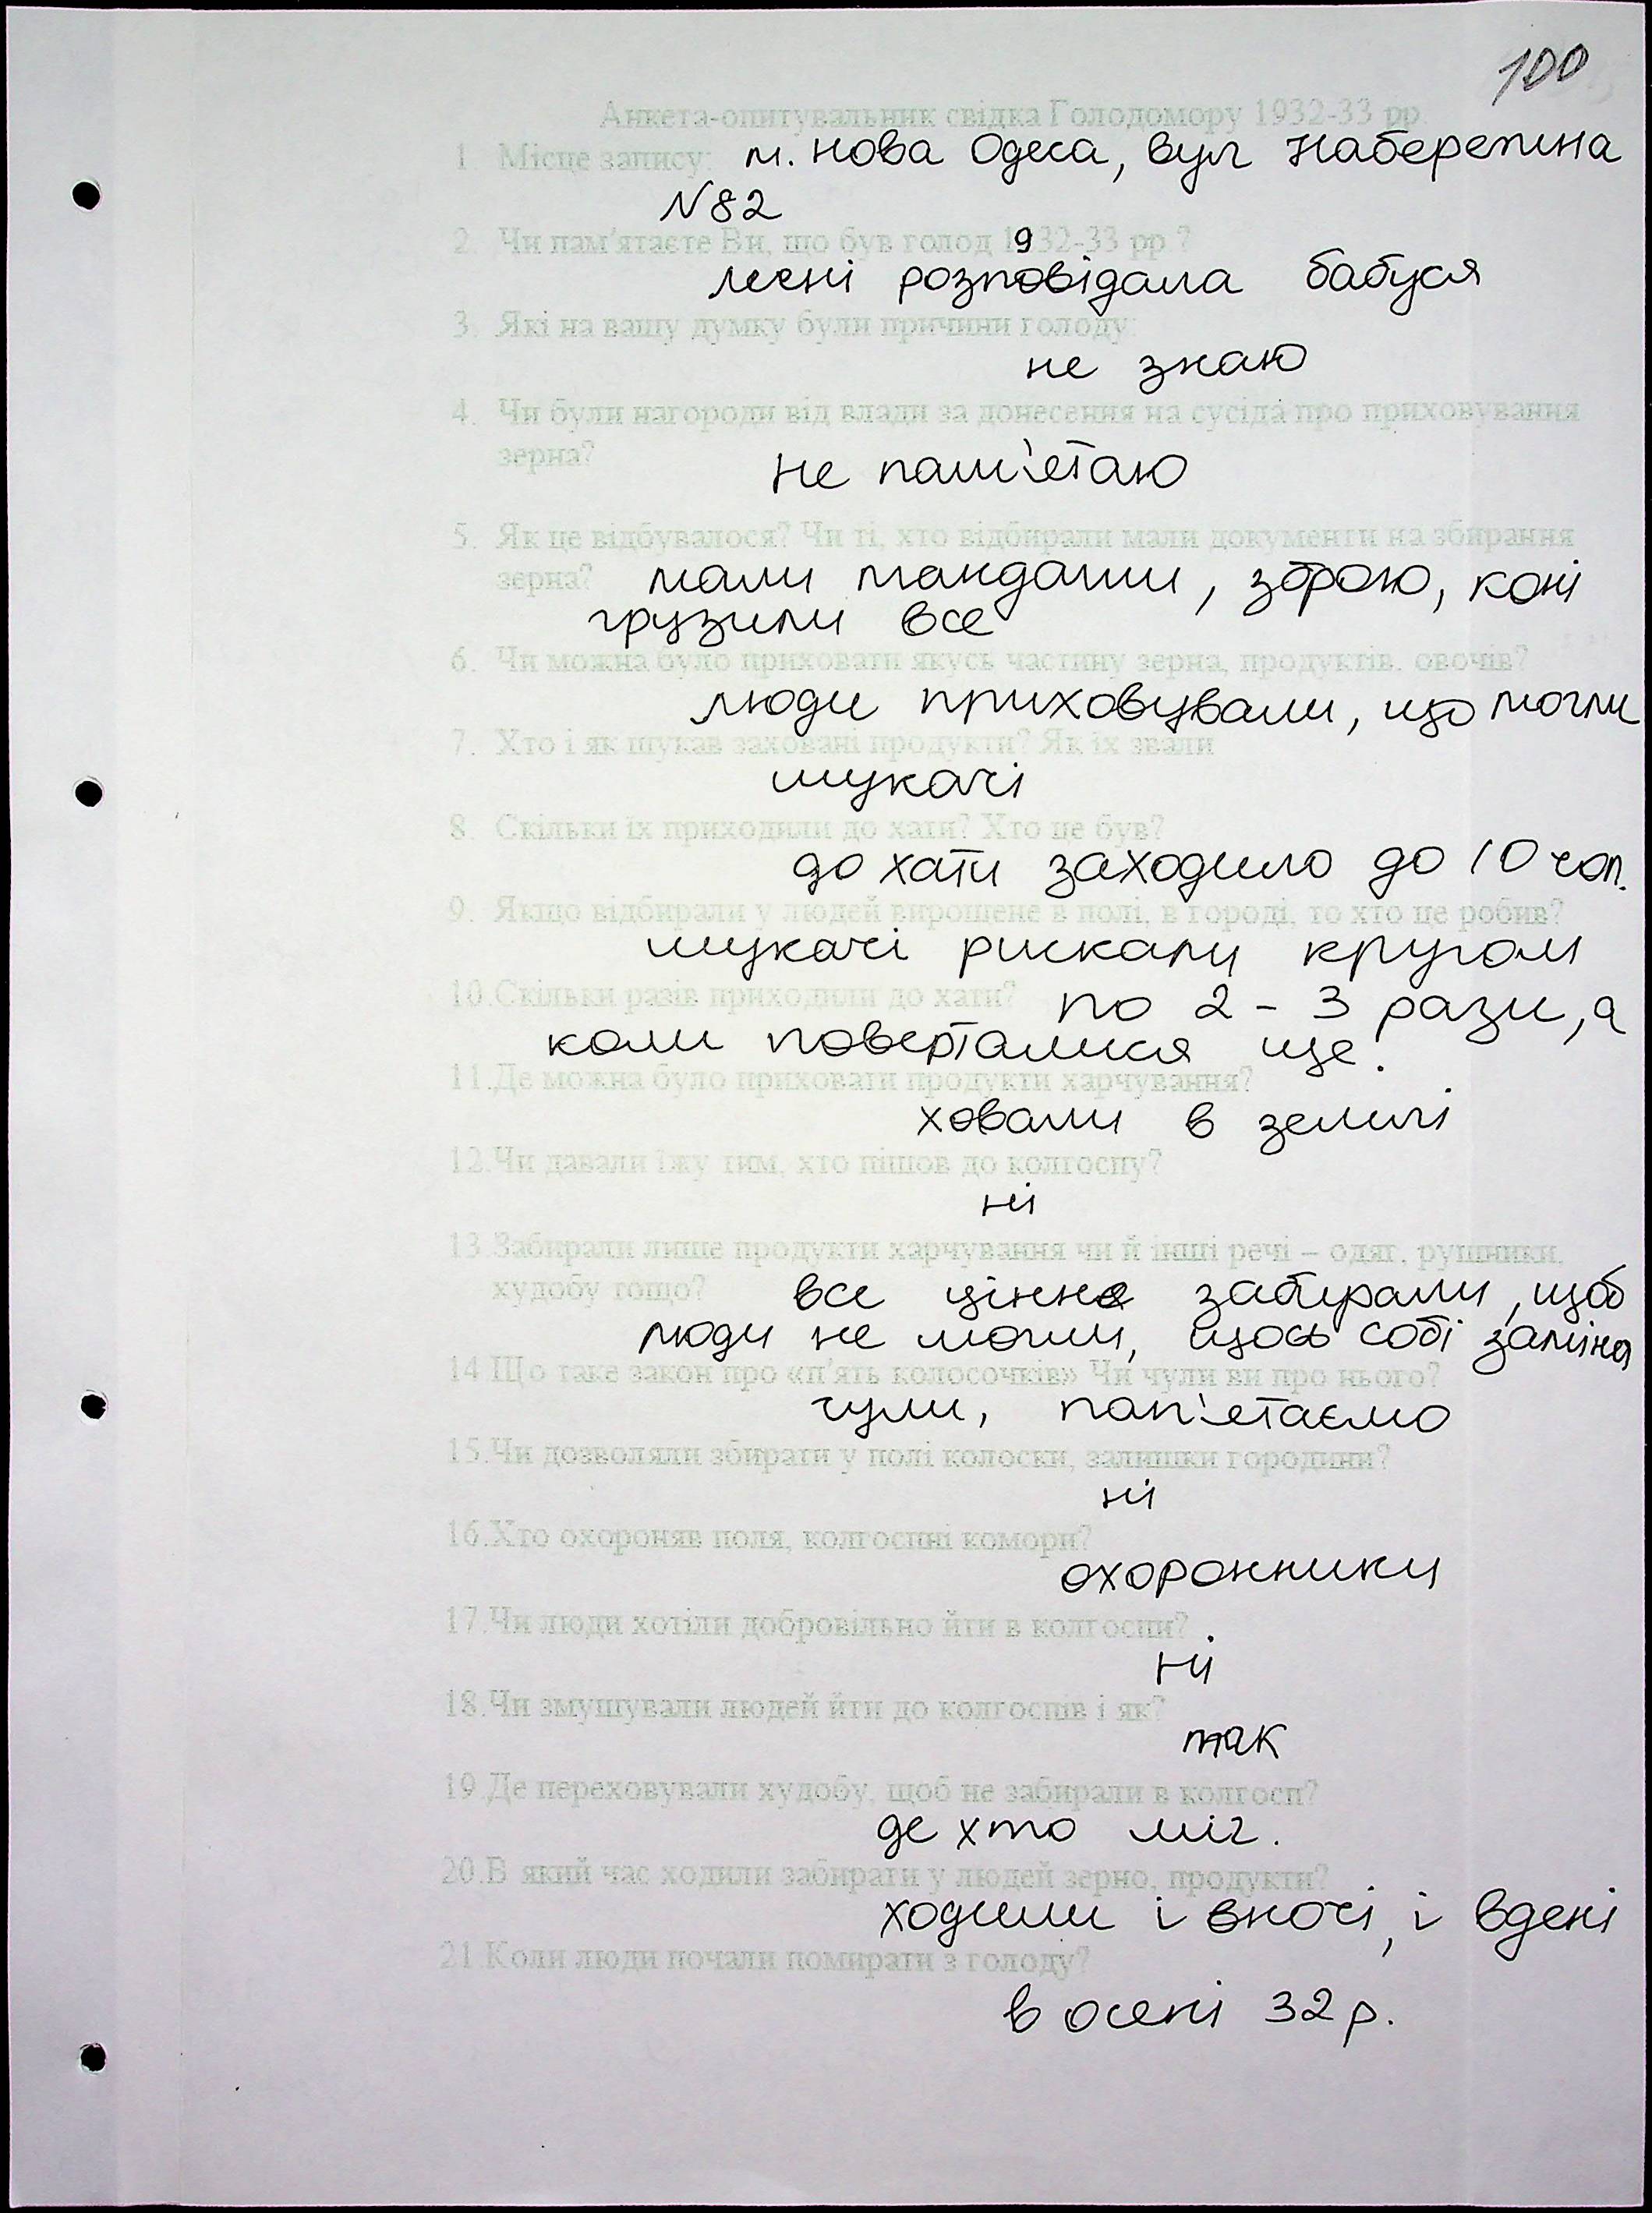 100
Анкета-опитувальник свідка Голодомору 1932-33 рр.
1. Місце запису: м. Нова Одеса, вул Набережна
N 82
2. Чи пам'ятаєте Ви, що був голод 1932-33 рр ?
мені розповідала бабуся
3. Які на вашу думку були причини голоду:
не знаю
4. Чи були нагороди від влади за донесення на сусіда про приховування
зерна? не пам'етаю
5. Як це відбувалося? Чи ті, хто відбирали мали документи на збирання
зерна? мали мандати, зброю, коні
грузили все
6. Чи можна було приховати якусь частину зерна, продуктів. овочів?
люди приховували, що могли
7. Хто і як шукав заховані продукти? Як їх звали
шукачі
8. Скільки їх приходили до хати? Хто це був?
до хати заходило до 10 чол.
9. Якщо відбирали у людей вирощене в полі, в городі, то хто це робив?
шукачі рискали кругом
10.Скільки разів приходили до хати? по 2 - 3 рази, а
коли поверталися ще.
11.Де можна було приховати продукти харчування?
ховали в землі
12.Чи давали їжу тим, хто пішов до колгоспу?
ні
13.Забирали лише продукти харчування чи й інші речі – одяг, рушники,
худобу тощо? все цінне забирали, щоб
люди не могли, щось собі заміня
14.Що таке закон про «п'ять колосочків» Чи чули ви про нього?
чули, пап'етаємо
15.Чи дозволяли збирати у полі колоски, залишки городини?
ні
16.Хто охороняв поля, колгоспні комори?
охоронники
17.Чи люди хотіли добровільно йти в колгоспи?
ні
18.Чи змушували людей йти до колгоспів і як?
так
19.Де переховували худобу, щоб не забирали в колгосп?
де хто міг.
20.В який час ходили забирати у людей зерно, продукти?
ходили і вночі, і вдені
21.Коли люди почали помирати з голоду?
в осені 32 р.